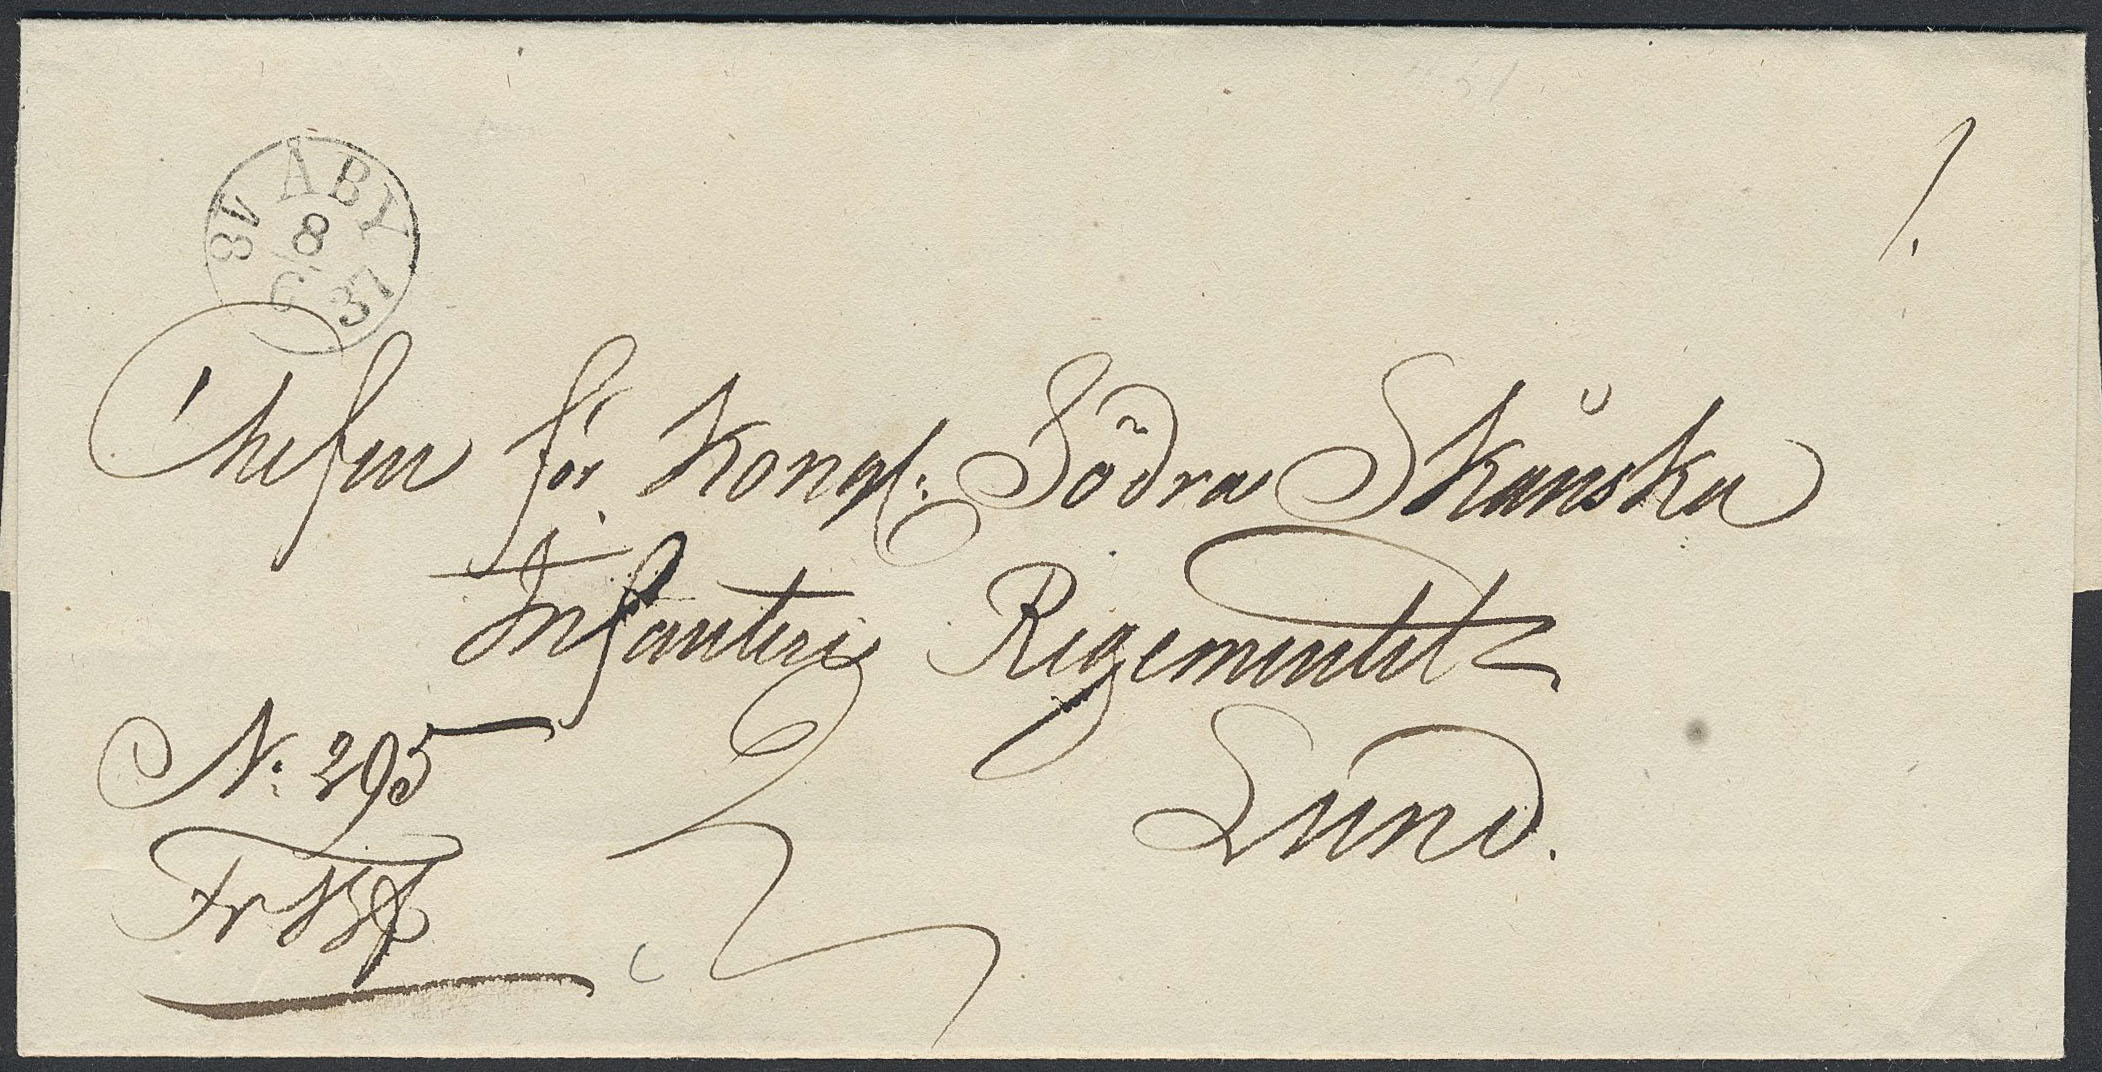 SV ÅBY
8
6 37
1.
Chefen för Kongl: Södra Skånska
Infanteri Regementet
Lund.
N: 295
Fr Bf